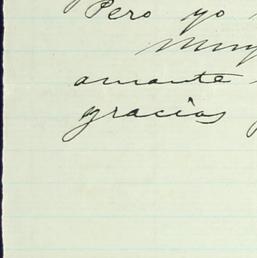 Pero yo
Muy
amante
gracias